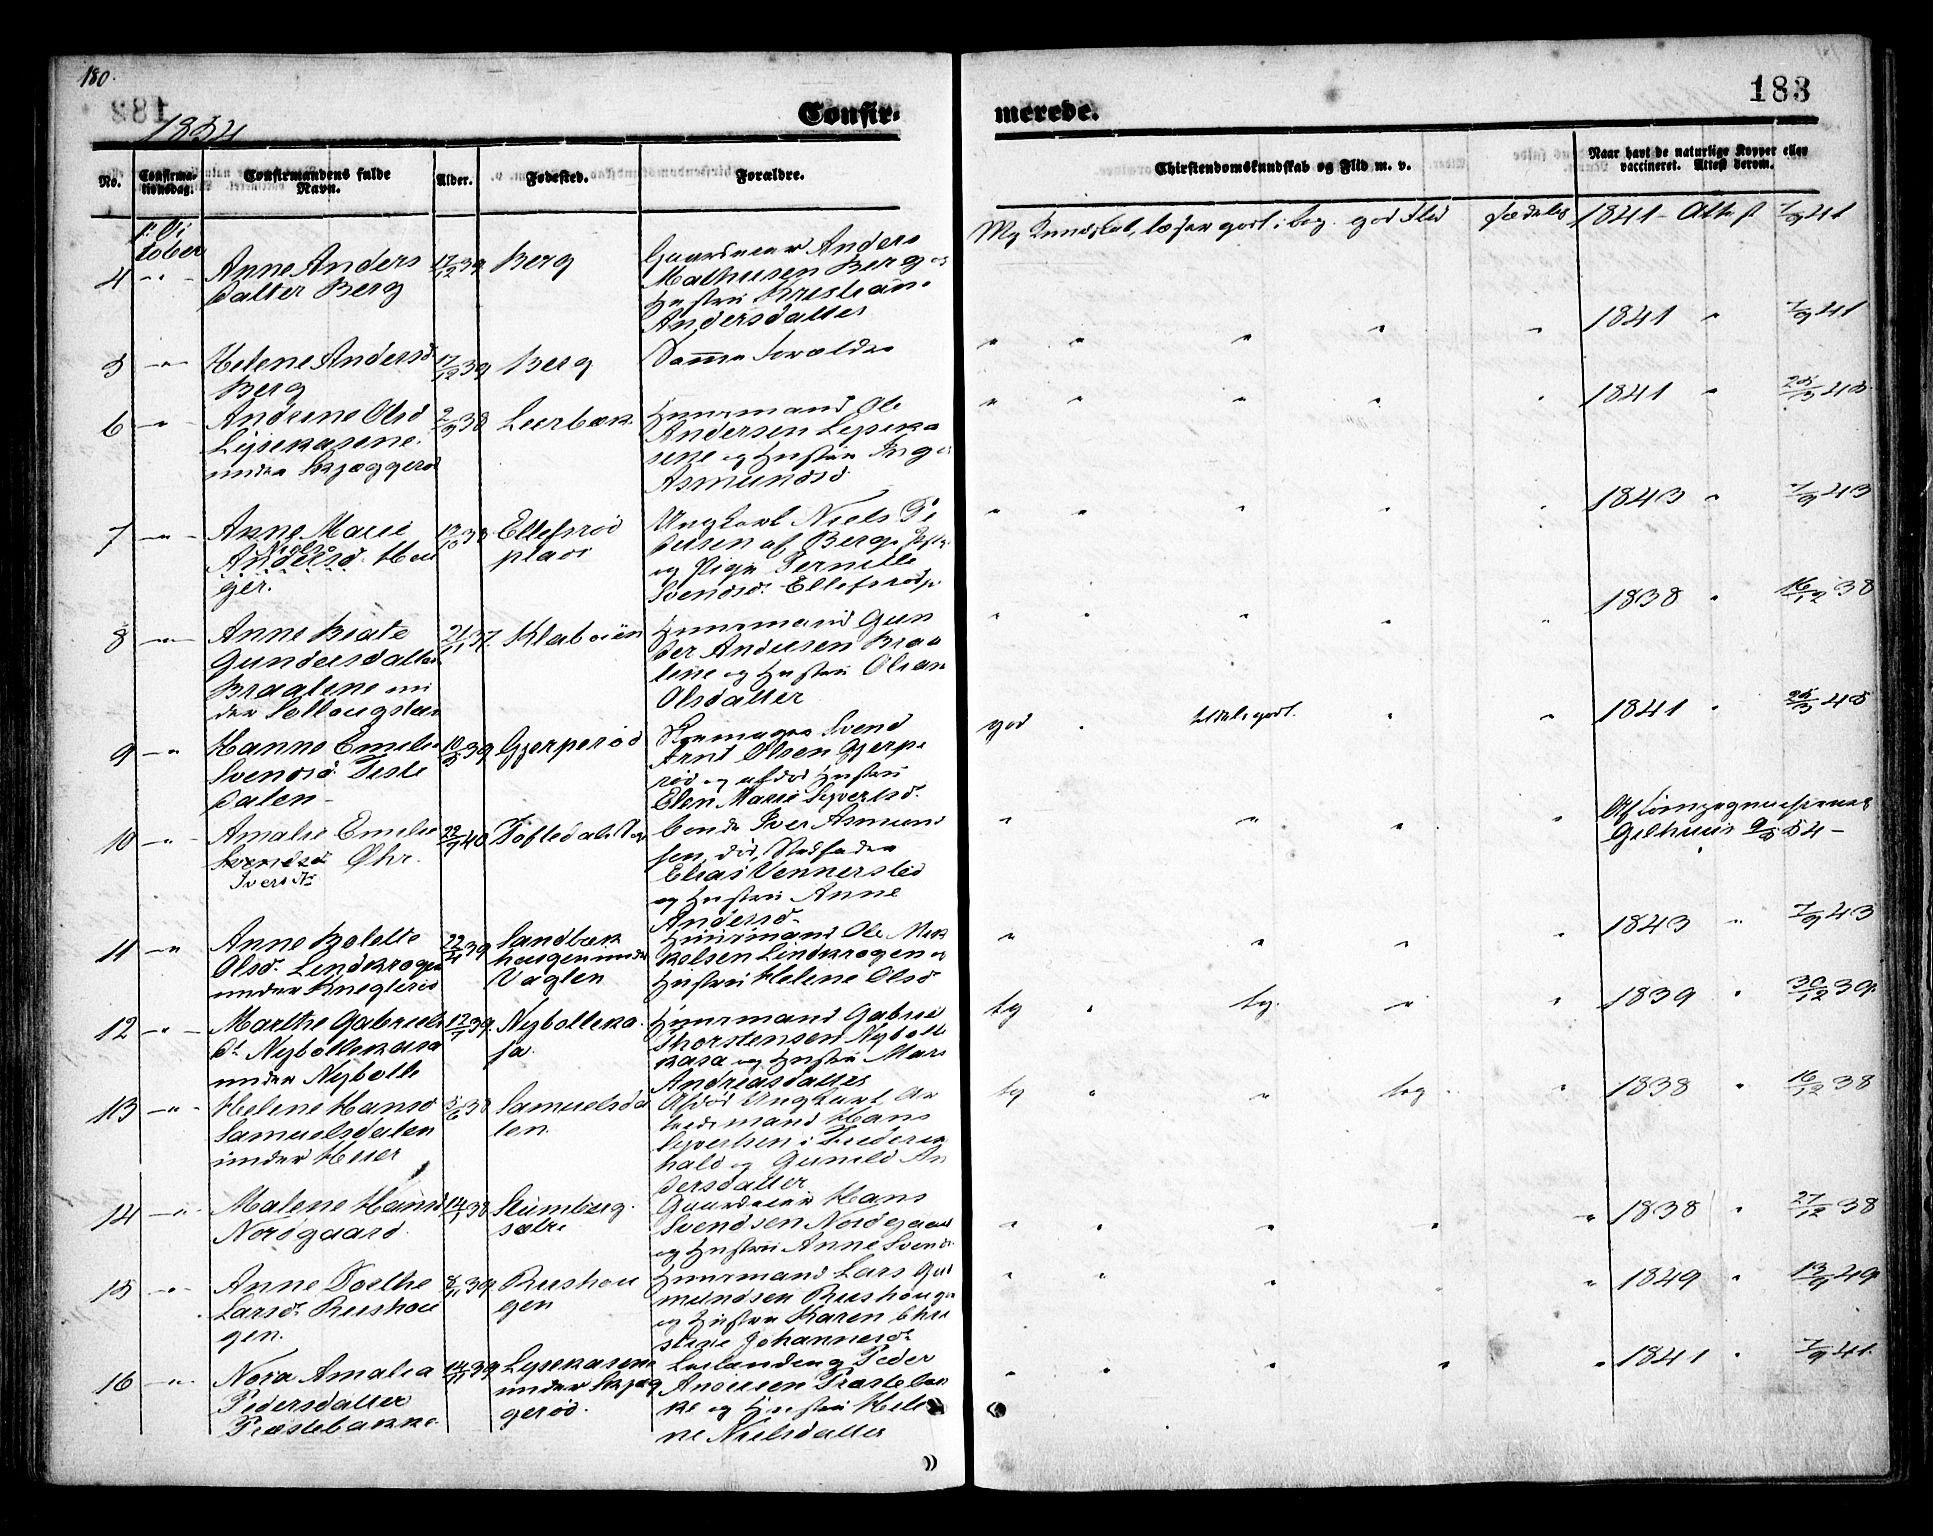 180.
183
1854
Confir-
merede.
No.
Confirma-
tionsdag.
Confirmandens fulde
Navn.
Alder.
Fødested.
Forældre.
Chirstendomskundskab og Flid m. v.
Naar havt de naturlige Kopper eller
vaccineret. Attest derom.
1. Oc
tober
4 -"- Anne Anders
datter Berg
17/12 39 Berg
Gaardeier Anders
Mathisen Berg og
Hustru Kristiane
Andersdatter
Mg Kundskab, læser godt i bog. god Flid sædelig 1841 - Attest 7/9 41
5 -"- Helene Andersd
Berg
17/12 39 Berg
Samme Forældre
" " " " " 1841 " 7/9 41
6 -"- Andrine Olsd
Lysekasene
under Skjæggerød
2/9 38 Leerbæk
Huusmand Ole
Andersen Lyseka
sene og Hustru Inger
Asmundsd
" " " " " 1841 "
7 -"- Anne Marie
Niels
Andersd. Hau
ger.
12/10 38 Ellefsrød
plads
Ungkarl Niels Pe
dersen af Berg
og Pige Pernille
Svendsd. Ellefsrød
" " " " " 1843 " 7/9 43
8 -"- Anne Beate
Gundersdatter
Braatene un
der
21/11 37. Klaboien
Huusmand Gun
der Andersen Braa
tene og Hustru
Olsdatter
" " " " " 1838 " 16/12 38
9 -" Hanne Emilie
Svendsd. Tiste
dalen -
10/5 39 Gjerperød
Skomager Svend
Arnt Olsen Gjerpe
rød og afdøde Hustru
Elen Marie Syvertsd.
god " godt. " " 1841 "
10 -" Amalie Emilie
Svendsd Øhr.
Iversd
22/7 40
Bonde Iver Asmund
sen, død, Stedfader
Elias Vennersted
og Hustru Anne
Andersd.
" " " "
Gilhuus 9/8 54 -
11 -" Anne Bolette
Olsd. Lindkrogen
under
22/11 39 Sandbæk
haugen under
Vaglen
Huusmand Ole Mik
kelsen Lindkrogen og
Hustru Helene Olsd
" " " " 1843 " 7/9 43
12 -"- Marthe Gabriels
dt Nyböllekasa
under Nybølle
12/7 39. Nybölleka
sa.
Huusmand Gabriel
Thorstensen Nybølle
kasa og Hustru Mari
Andreasdatter
tg " tg. " " 1839 " 30/12 39.
13 -"- Helene Hansd
Samuelsdalen
under Heier
5/6 38 Samuelsda
len.
Afdød Ungkarl Ar
beidsmand Hans
Syvertsen i Frederiks
hald og Gunild An
dersdatter
tg " " tg. " 1838 " 16/12 38
14 -"- Malene Hansd
Nordgaard.
14/1 38
sætre
Gaardeier Hans
Svendsen Nordgaard
og Hustru Anne Svends
" " " " " 1838 " 27/12 38
15 -"- Anne Dorthe
Larsd. Rushou
gen.
8/11 39 Rushou
gen
Huusmand Lars Gud
mundsen Rushougen
og Hustru Karen Chri
stine Johannesd.
" " " " " 1849 " 13/9 49
16 -"- Nora Amalia
Pedersdatter
Præstebakke
14/11 39 Lysekasene
under Skjæg
gerød.
Leilænding Peder
Andersen Præstebak
ke og Hustru Hele
ne Nielsdatter
" " " " " 1841 " 7/9 41.